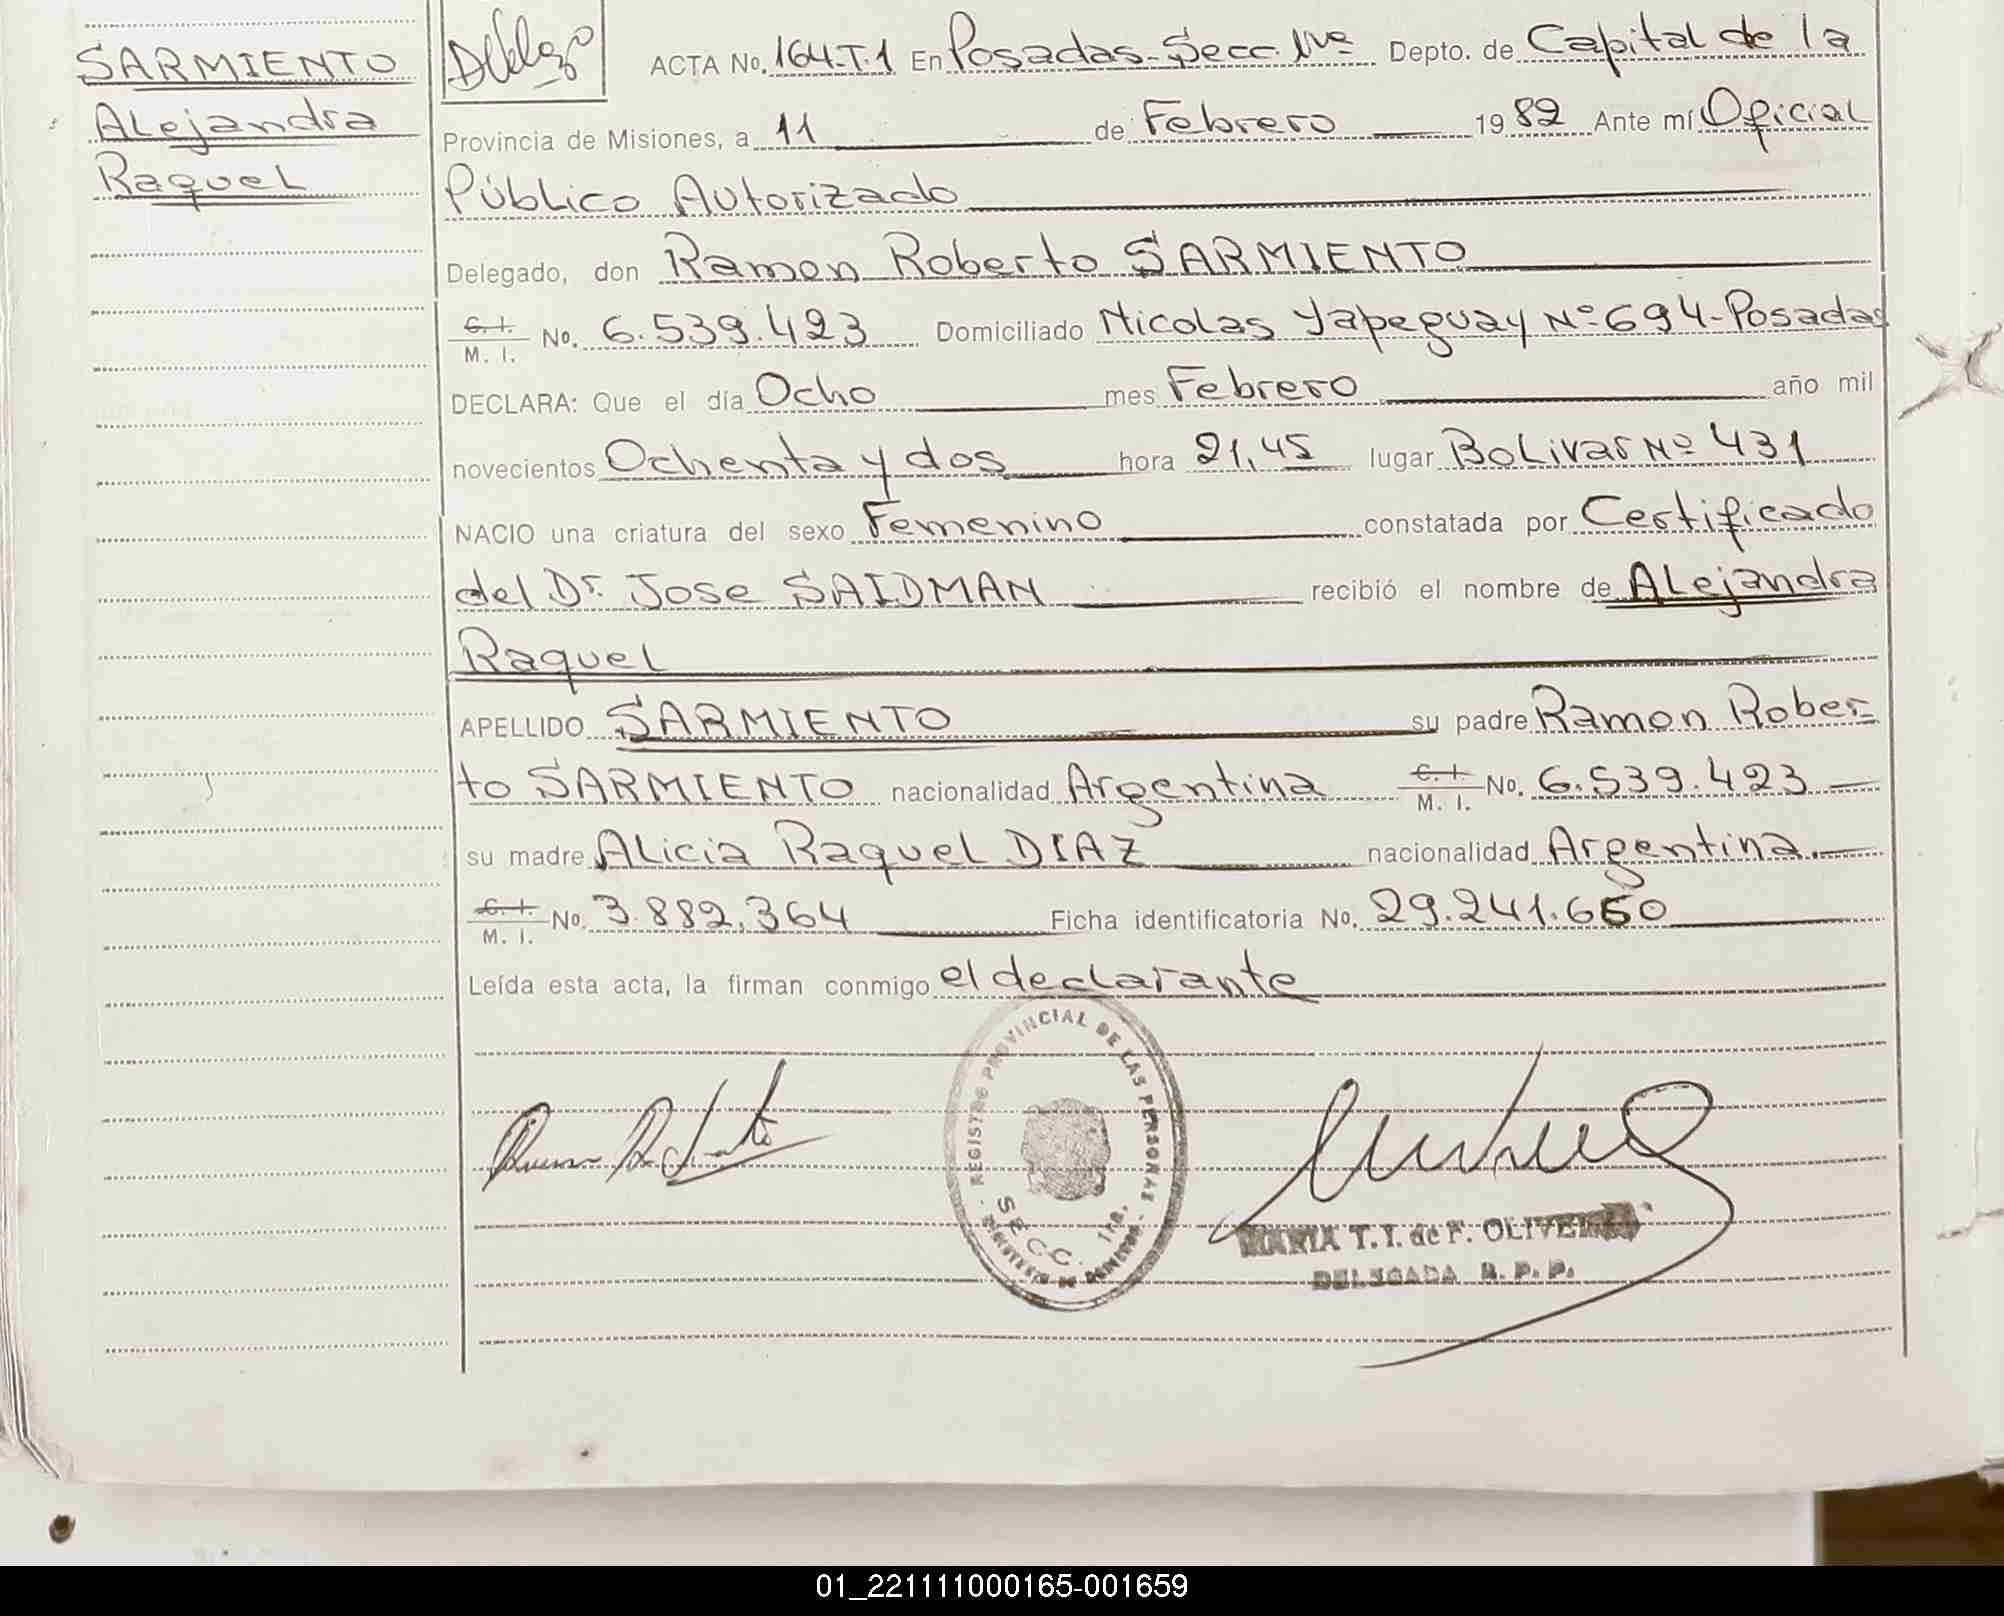 SARMIENTO
Alejandra
Raquel
ACTA No. 164.T.1 En Posadas-Secc. 1ra Depto. de Capital de la
Provincia de Misiones, a 11 de Febrero 1982 Ante mí Oficial
Público Autorizado
Delegado, don Ramon Roberto SARMIENTO
C. I. / M. I. No. 6.539.423 Domiciliado Nicolas Yapeguay Nº 694-Posadas
DECLARA: Que el día Ocho mes Febrero año mil
novecientos Ochenta y dos hora 21,45 lugar Bolivar Nº 431
NACIO una criatura del sexo Femenino constatada por Certificado
del Dr. Jose SAIDMAN recibió el nombre de Alejandra
Raquel
APELLIDO SARMIENTO su padre Ramon Rober=
to SARMIENTO nacionalidad Argentina C. I. / M. I. No. 6.539.423
su madre Alicia Raquel DIAZ nacionalidad Argentina.
C. I. / M. I. No. 3.882.364 Ficha identificatoria No. 29.241.650
Leída esta acta, la firman conmigo el declarante
REGISTRO PROVINCIAL DE LAS PERSONAS
SECC. 1ra.
MARIA T. I. de F. OLIVEIRA
DELEGADA R. P. P.
01_221111000165-001659